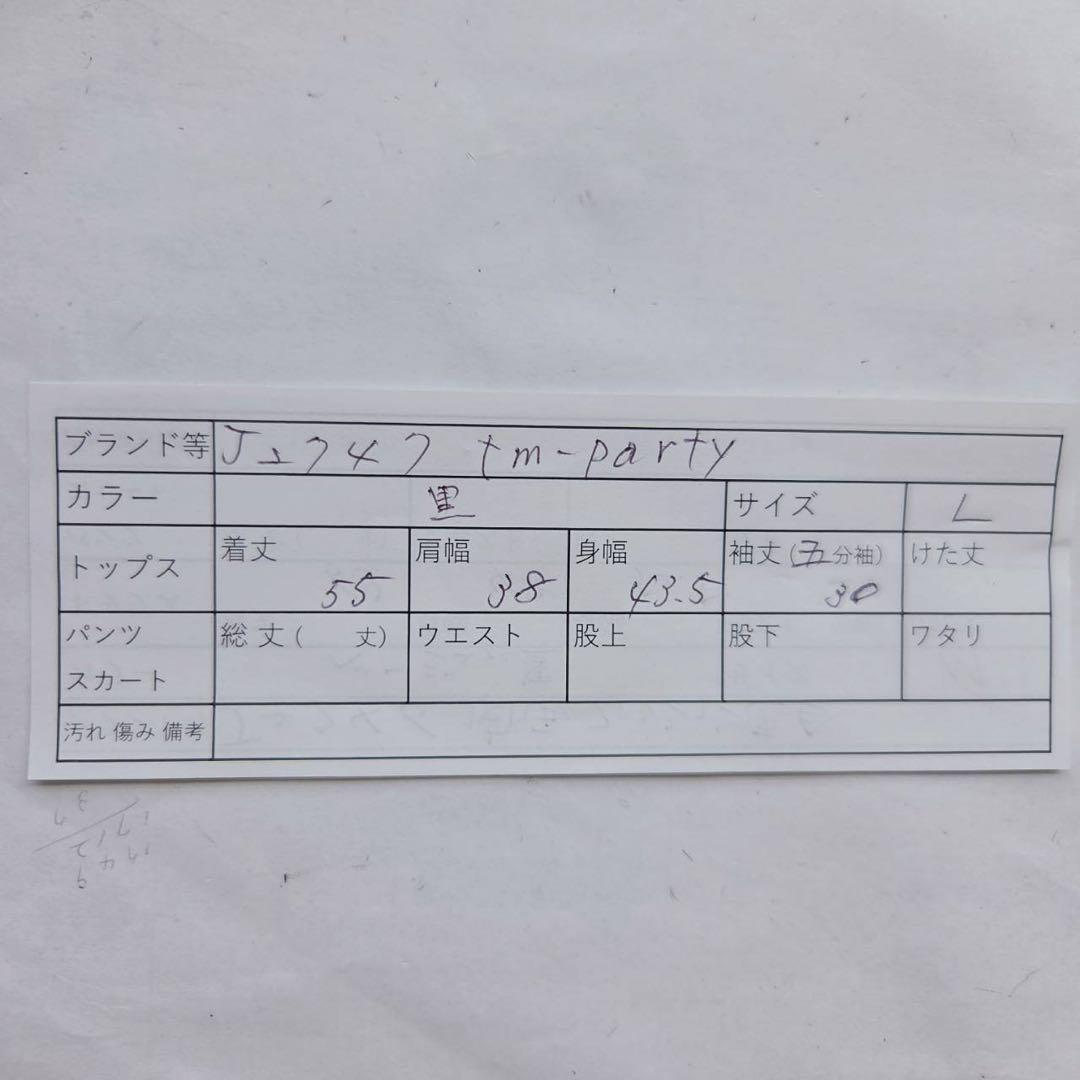 ブランド等 J2747 tm-party
カラー 黒 サイズ L
トップス 着丈 55 肩幅 38 身幅 43.5 袖丈(五分袖) 30 けた丈
パンツ スカート 総丈( 丈) ウエスト 股上 股下 ワタリ
汚れ 傷み 備考